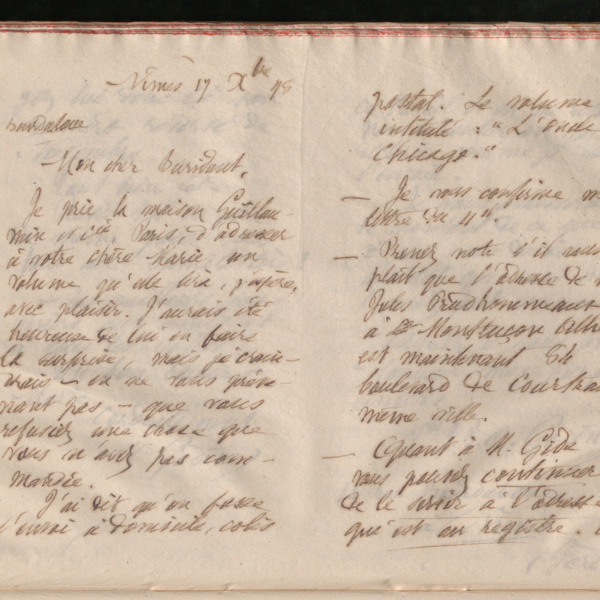 Nîmes 17 Xbre 98
Mon cher Buridant,
Je prie la maison Guillau-
min et Cie, Paris, d'adresser
à votre chère Marie un
volume qu'elle lira, j'espère,
avec plaisir. J'aurais été
heureuse de lui en faire
la surprise, mais je crain-
drais – en ne vous préve-
nant pas – que vous
refusiez une chose que
vous n'avez pas com-
mandée.
J'ai dit qu'on fasse
l'envoi à domicile, colis
postal. Le volume
intitulé : "L'oncle
Chicago."
— Je vous confirme m
lettre du 11".
— Prenez note s'il vous
plaît que l'adresse de
Jules Prudhommeaux
à Montluçon Allier
est maintenant 56
boulevard de Courtrais
même ville.
— Quant à M. Gide
vous pouvez continuer
de le servir à l'adresse
qui est au registre.